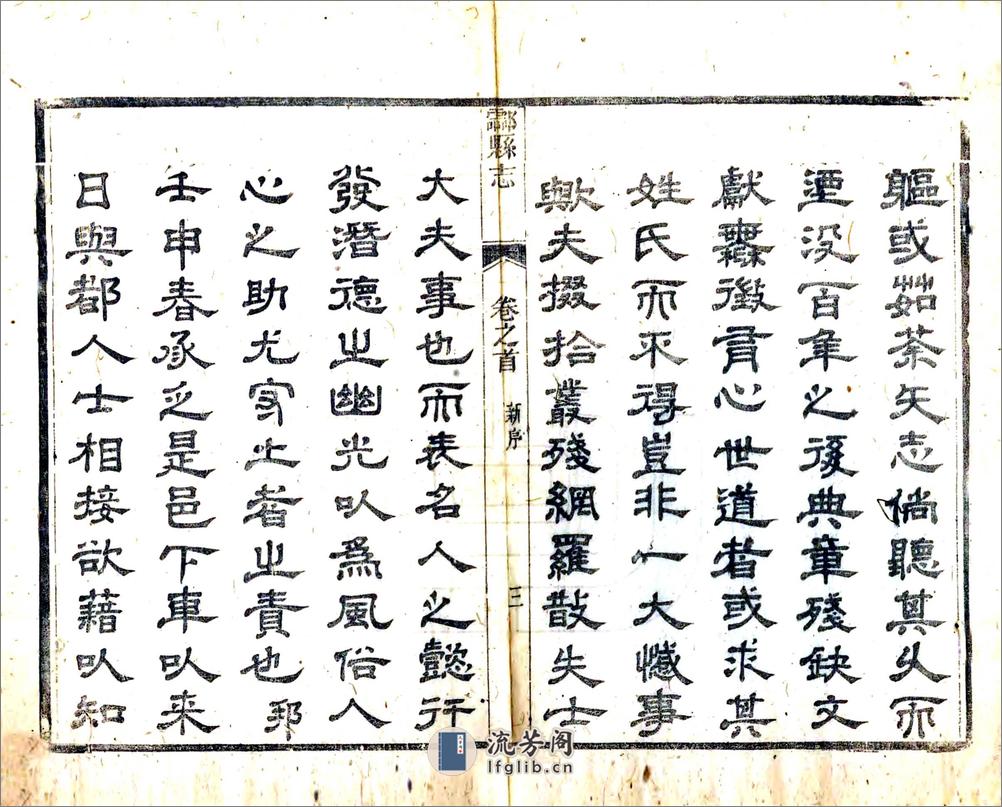 軀或茹荼矢志倘聽其久而
湮没百年之後典章殘缺文
獻無徵有心世道者或求其
姓氏而不得豈非一大憾事
歟夫掇拾叢殘網羅散失士
酃縣志 卷之首 新序 三
大夫事也而表名人之懿行
發潛德之幽光以為風俗人
心之助尤守土者之責也邦
壬申春承乏是邑下車以来
日與都人士相接欲藉以知
流芳阁
lfglib.cn